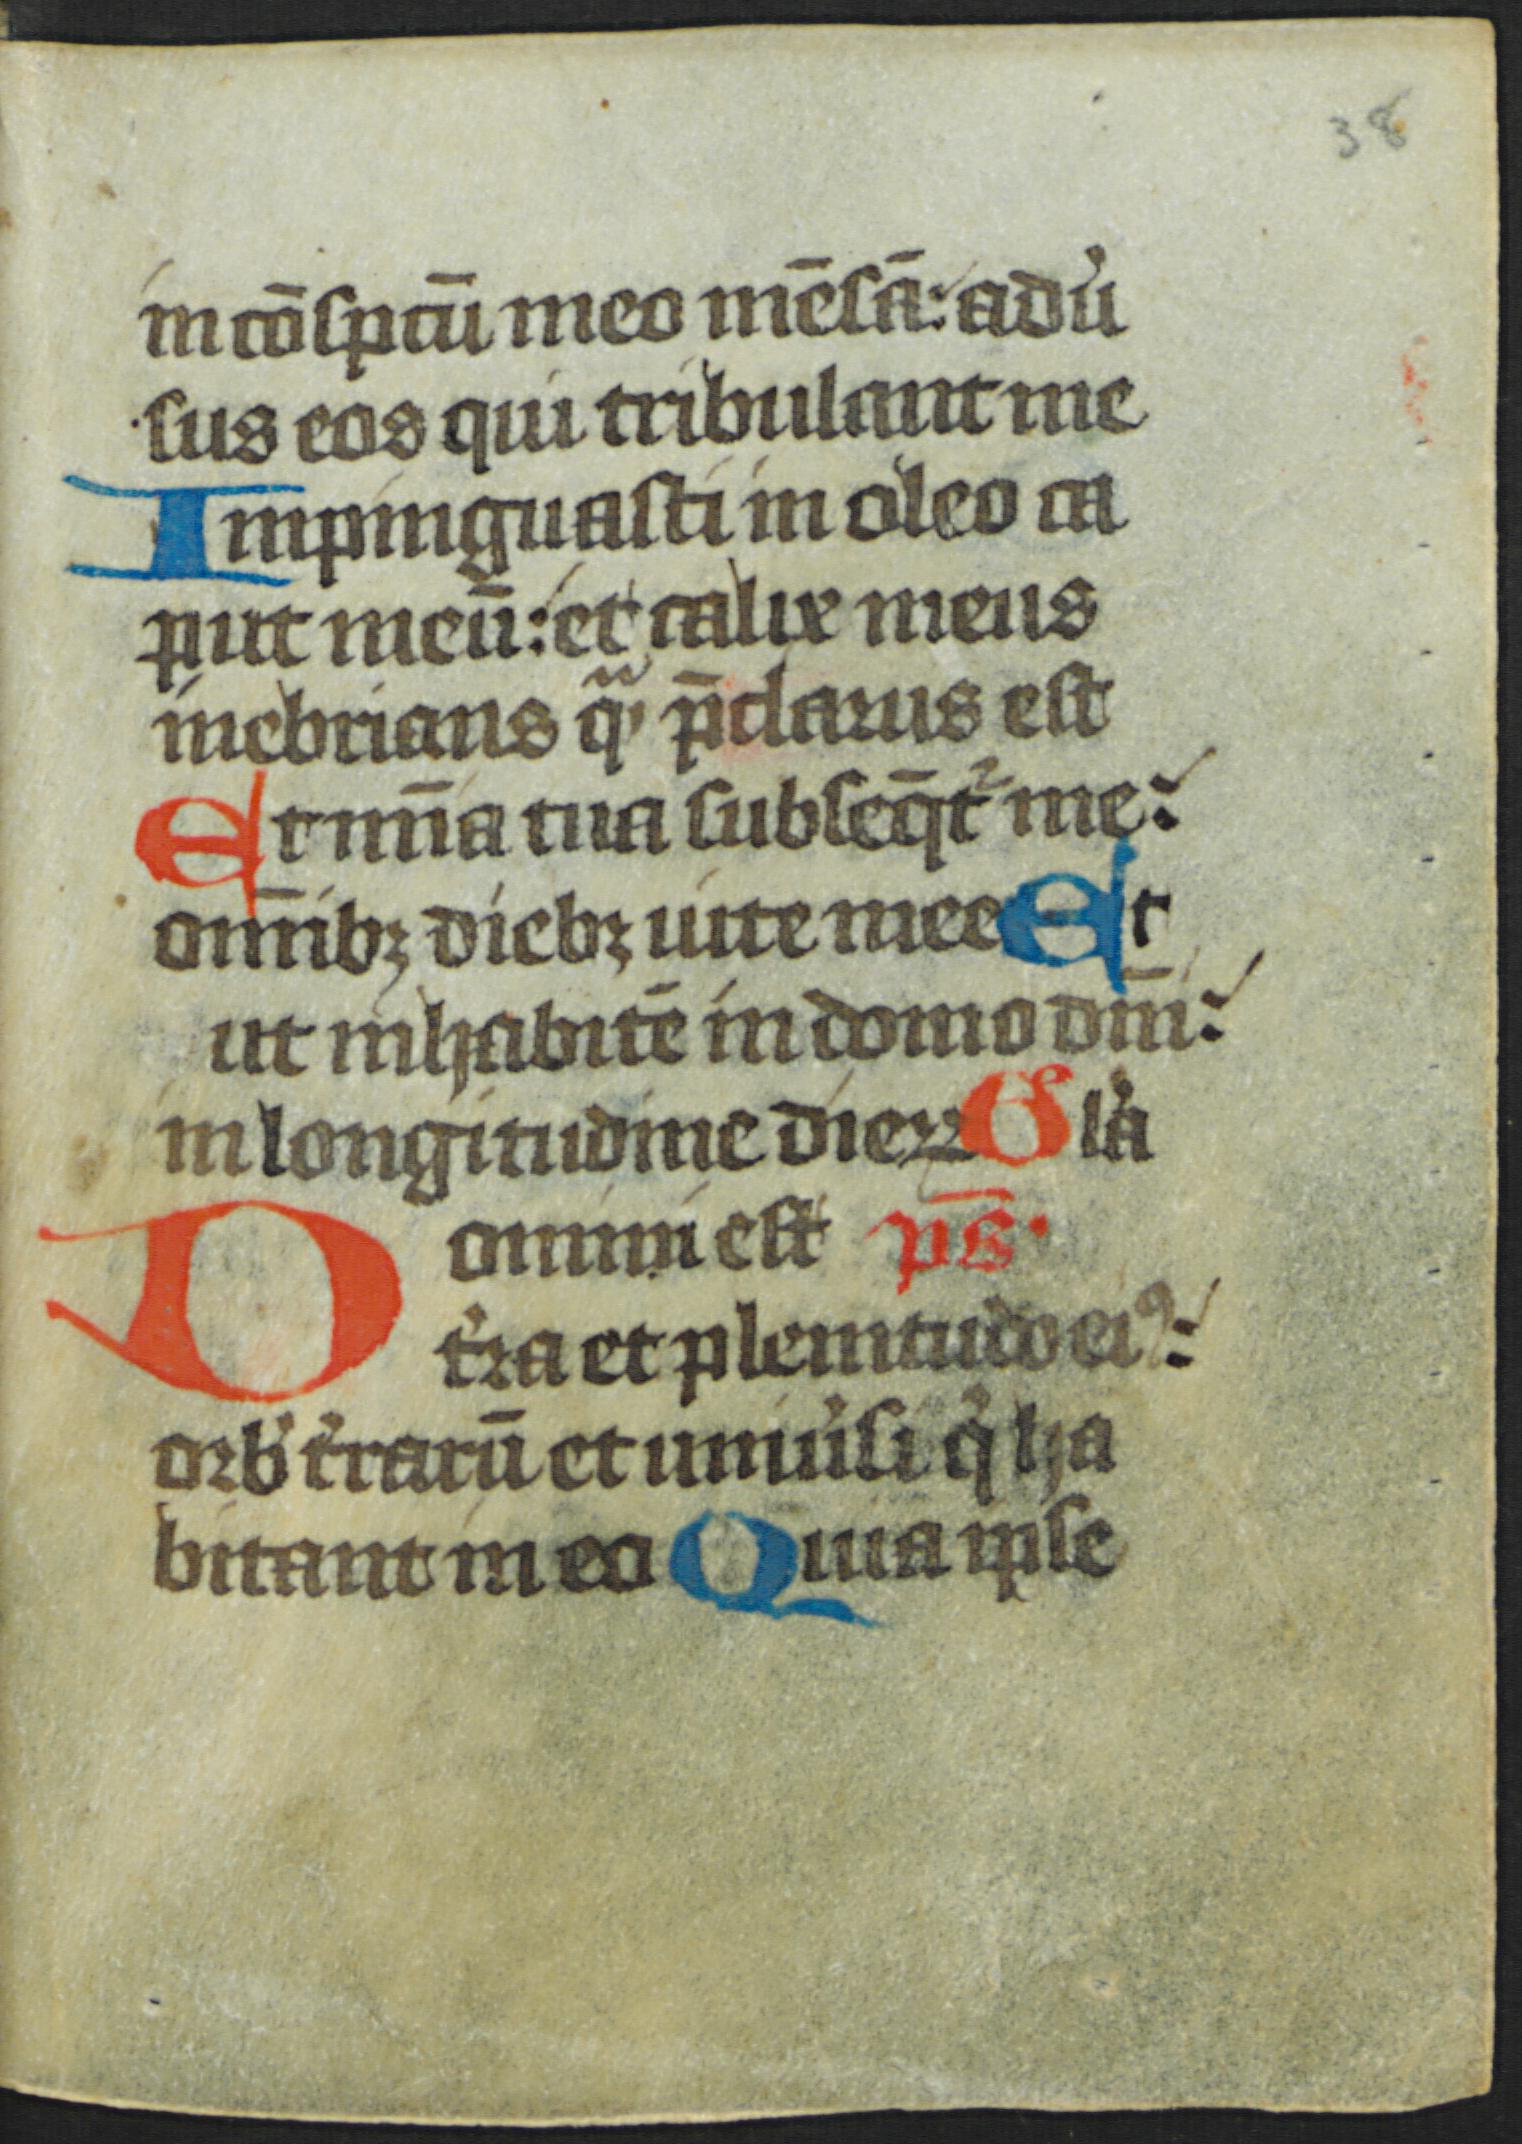 38
in cōsptū meo mēsā: adu̓
sus eos qui tribulant me
Impinguasti in oleo ca
put meū: et calix meus
inebrians qͣ p̄clarus est
Et mīa tua subseq̄tᷣ me:
om̄ibꝫ diebꝫ uite mee Et
ut inhabitē in domo dn̄i:
in longitudine dieꝝ Gła
Domini est p̄s.
t̓ra et plenitudo eiꝰ:
orb̓ t̓rarū et uniu̓si q̓ ha
bitant in eo Quia ipse